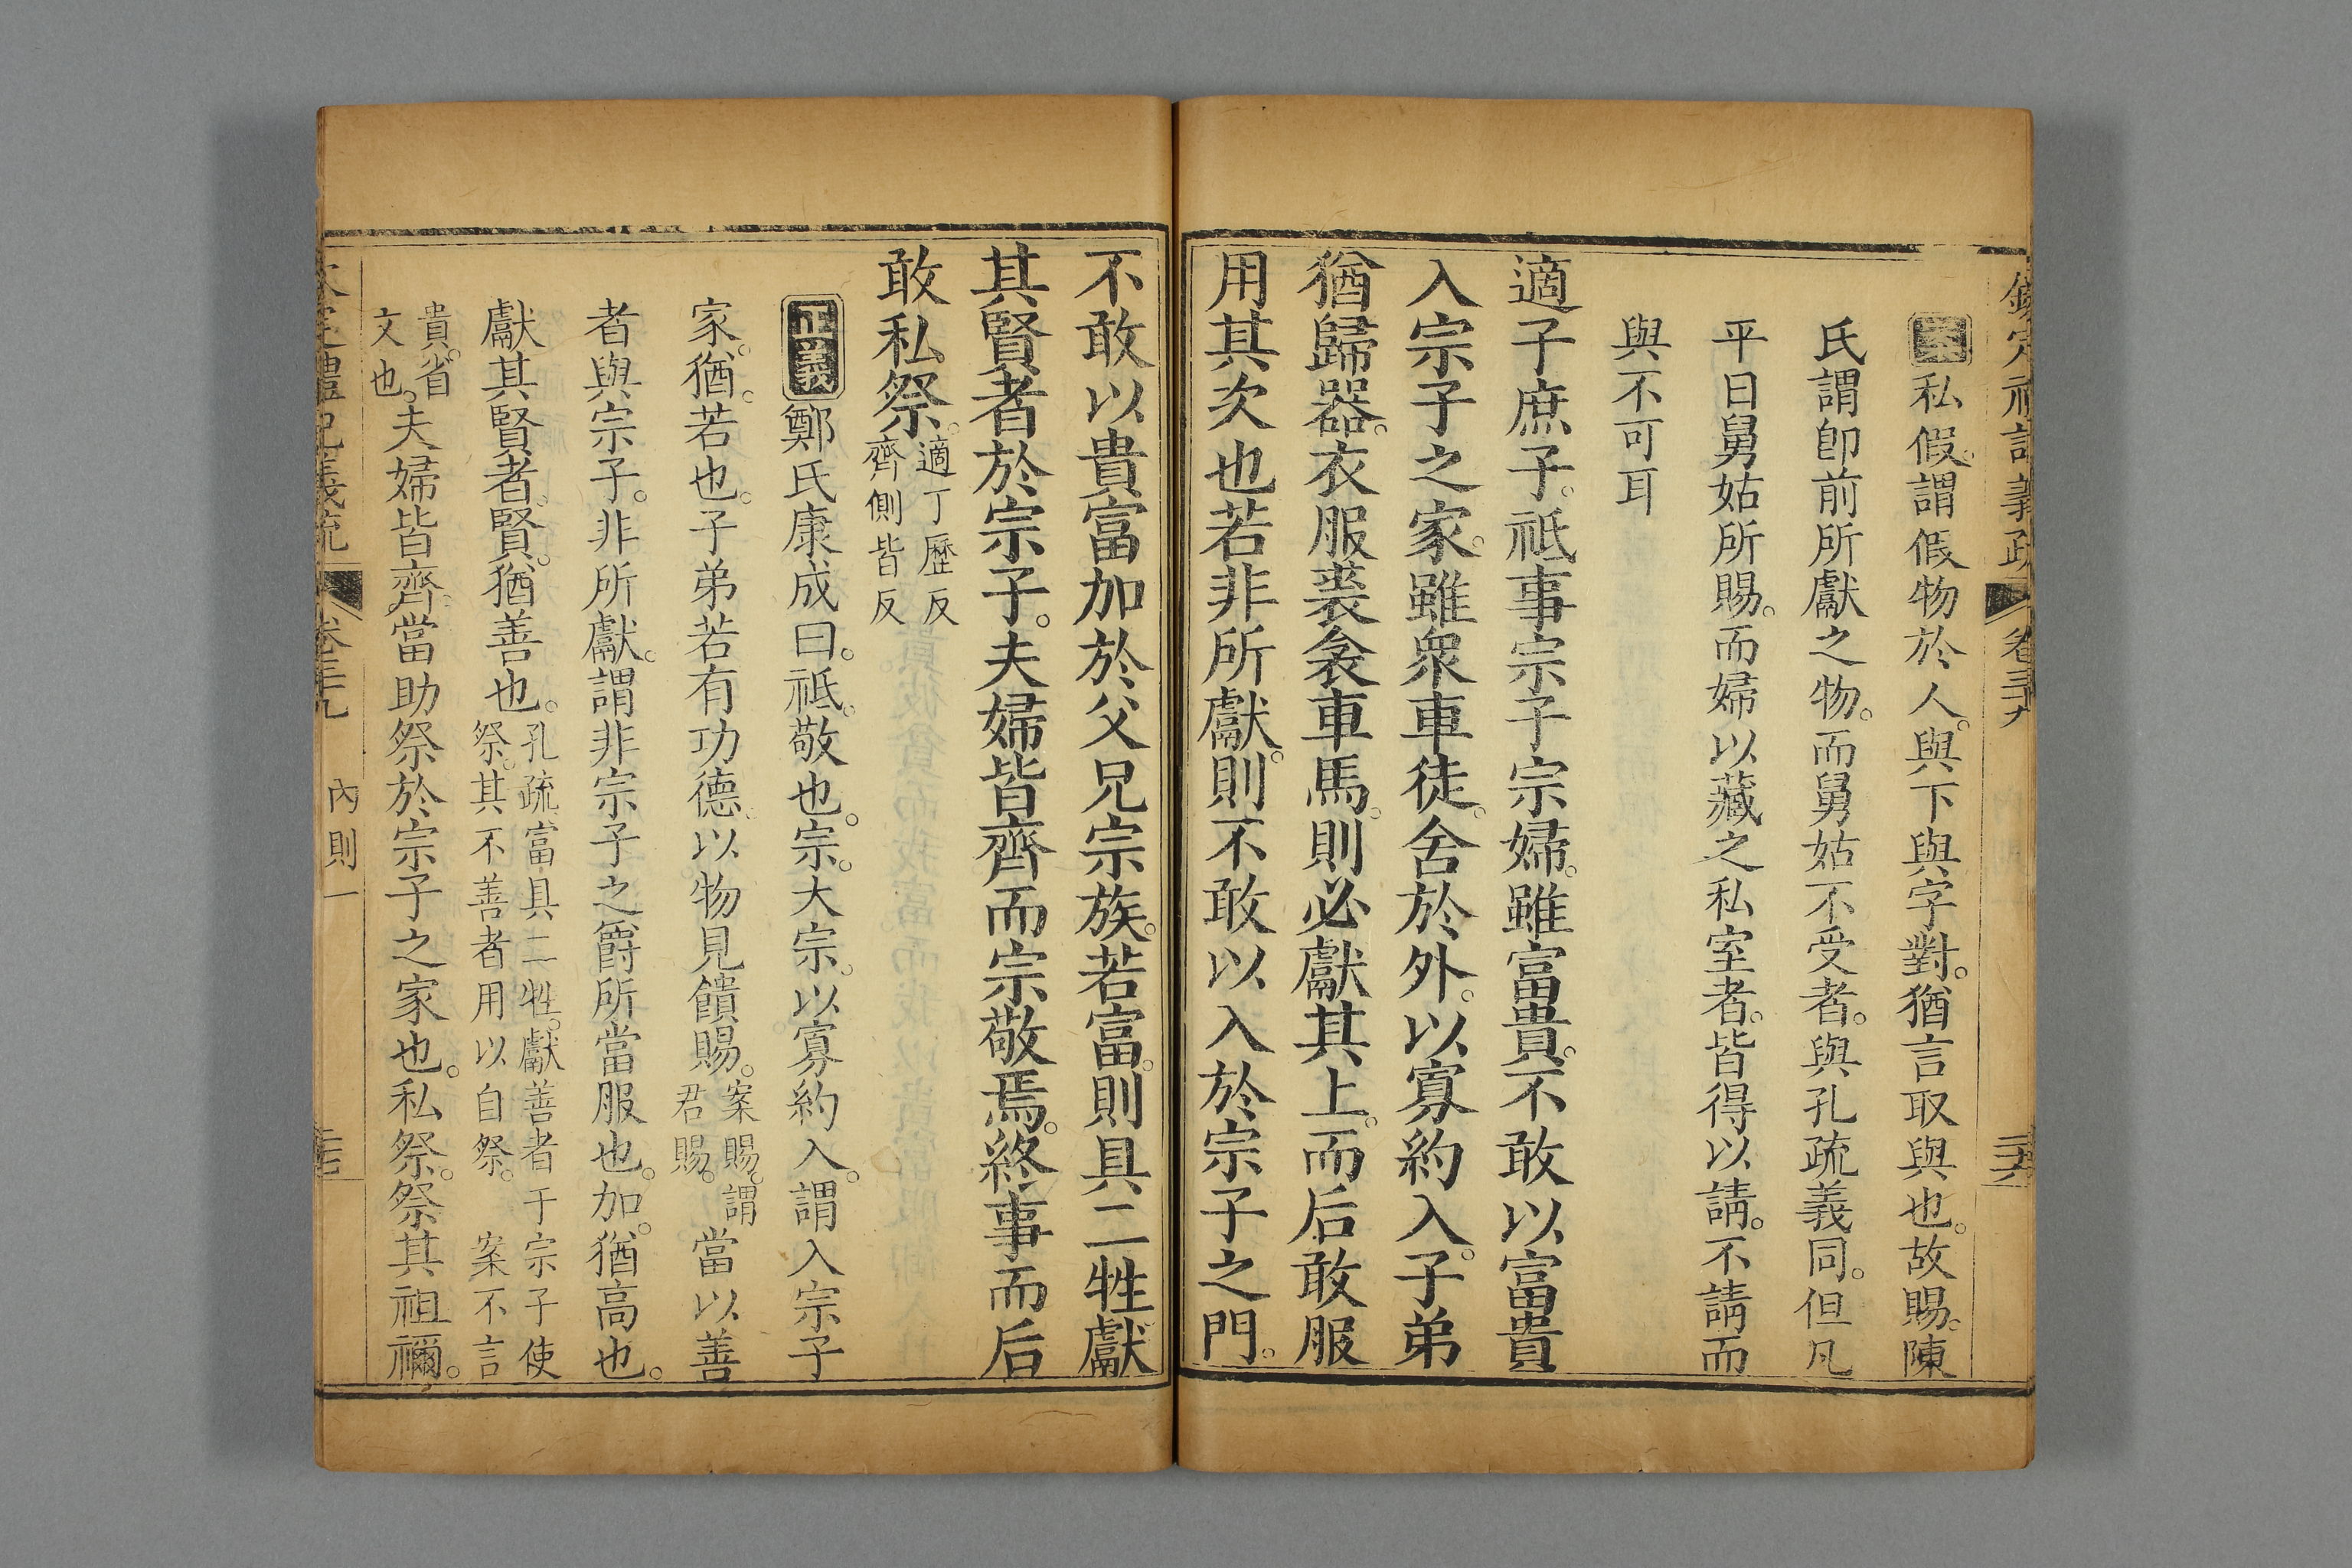 欽定禮記義疏 卷三十九 三六
案私假。謂假物於人。與下與字對。猶言取與也。故賜。陳
氏謂卽前所獻之物。而舅姑不受者。與孔疏義同。但凡
平日舅姑所賜。而婦以藏之私室者。皆得以請。不請而
與不可耳
適子庶子。祗事宗子宗婦。雖富貴。不敢以富貴
入宗子之家。雖衆車徒。舍於外。以寡約入。子弟
猶歸器。衣服裘衾車馬。則必獻其上。而后敢服
用其次也若非所獻。則不敢以入於宗子之門。
不敢以貴富加於父兄宗族。若富。則具二牲獻
其賢者於宗子。夫婦皆齊而宗敬焉。終事而后
敢私祭。適丁歷反
齊側皆反
正義鄭氏康成曰。祗。敬也。宗。大宗。以寡約入。謂入宗子
家。猶。若也。子弟若有功德。以物見饋賜。案賜。謂
君賜。當以善
者與宗子。非所獻。謂非宗子之爵所當服也。加。猶高也。
獻其賢者。賢。猶善也。孔疏。富具二牲。獻善者于宗子使
祭。其不善者用以自祭。 案不言
貴。省
文也。夫婦皆齊。當助祭於宗子之家也。私祭。祭其祖禰。
欽定禮記義疏 卷三十九 內則一